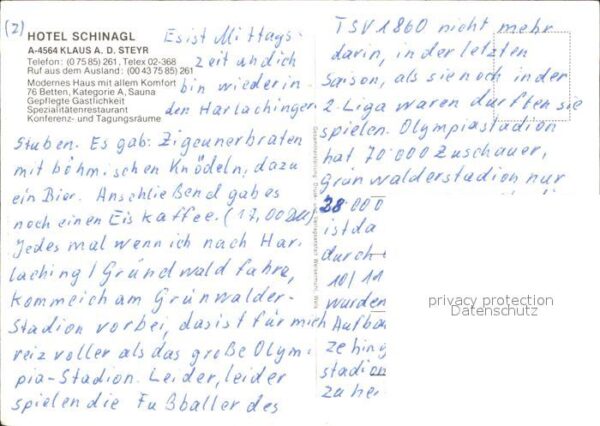 (2)
HOTEL SCHINAGL
A-4564 KLAUS A. D. STEYR
Telefon: (0 75 85) 261, Telex 02-368
Ruf aus dem Ausland: (00 43 75 85) 261
Modernes Haus mit allem Komfort
76 Betten, Kategorie A, Sauna
Gepflegte Gastlichkeit
Spezialitätenrestaurant
Konferenz- und Tagungsräume
Es ist Mittags-
zeit und ich
bin wieder in
den Harlachinger
Stuben. Es gab: Zigeunerbraten
mit böhmischen Knödeln, dazu
ein Bier. Anschließend gab es
noch einen Eiskaffee. (17,00 DM)
Jedes mal wenn ich nach Har-
laching / Grünwald fahre,
komme ich am Grünwalder-
Stadion vorbei, das ist für mich
reizvoller als das große Olym-
pia-Stadion. Leider, leider
spielen die Fußballer des
TSV 1860 nicht mehr
darin, in der letzten
Saison, als sie noch in der
2. Liga waren durften sie
spielen. Olympiastadion
hat 70 000 Zuschauer,
Grünwalderstadion nur
28 000
ist da
durch
10/11
wurden
Aufbau
ze hing
stadion
zu hei
privacy protection
Datenschutz